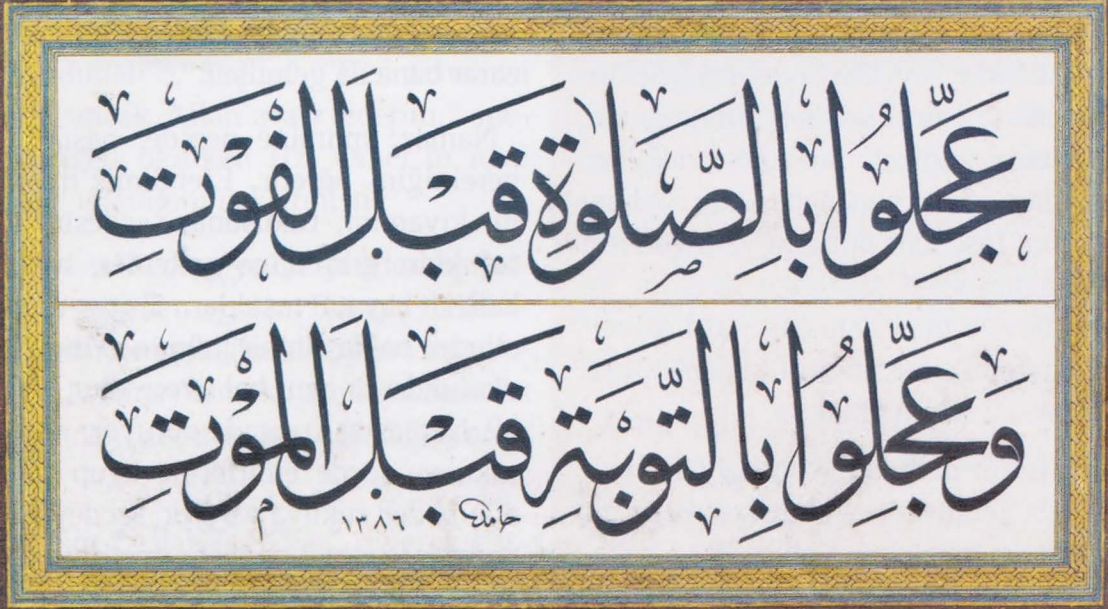 عَجِّلُوا بِالصَّلٰوةِ قَبْلَ الْفَوْتِ
وَعَجِّلُوا بِالتَّوْبَةِ قَبْلَ الْمَوْتِ
حامد ١٣٨٦